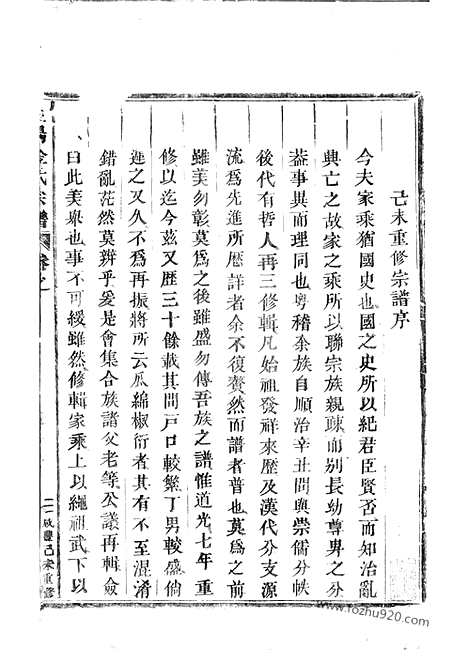 己未重修宗譜序
今夫家乘猶國史也國之史所以紀君臣賢否而知治亂
興亡之故家之乘所以聯宗族親疎而别長幼尊畀之分
葢事異而理同也粤稽余族自順治辛丑間與崇儒分帙
後代有哲人再三修輯凡始祖發祥來歴及漢代分支源
流爲先進所歴詳者余不復贅然而譜者普也莫爲之前
雖美勿彰莫爲之後雖盛勿傳吾族之譜惟道光七年重
修以迄今兹又歴三十餘載其間戸口較繁丁男較盛倘
延之又久不爲再振將所云瓜綿椒衍者其有不至混淆
錯亂茫然莫辨乎爰是會集合族諸父老等公議再輯僉
曰此美舉也事不可緩雖然修輯家乘上以繩祖武下以
余氏宗譜
二 咸豐己未重修
www.foxtu920.com